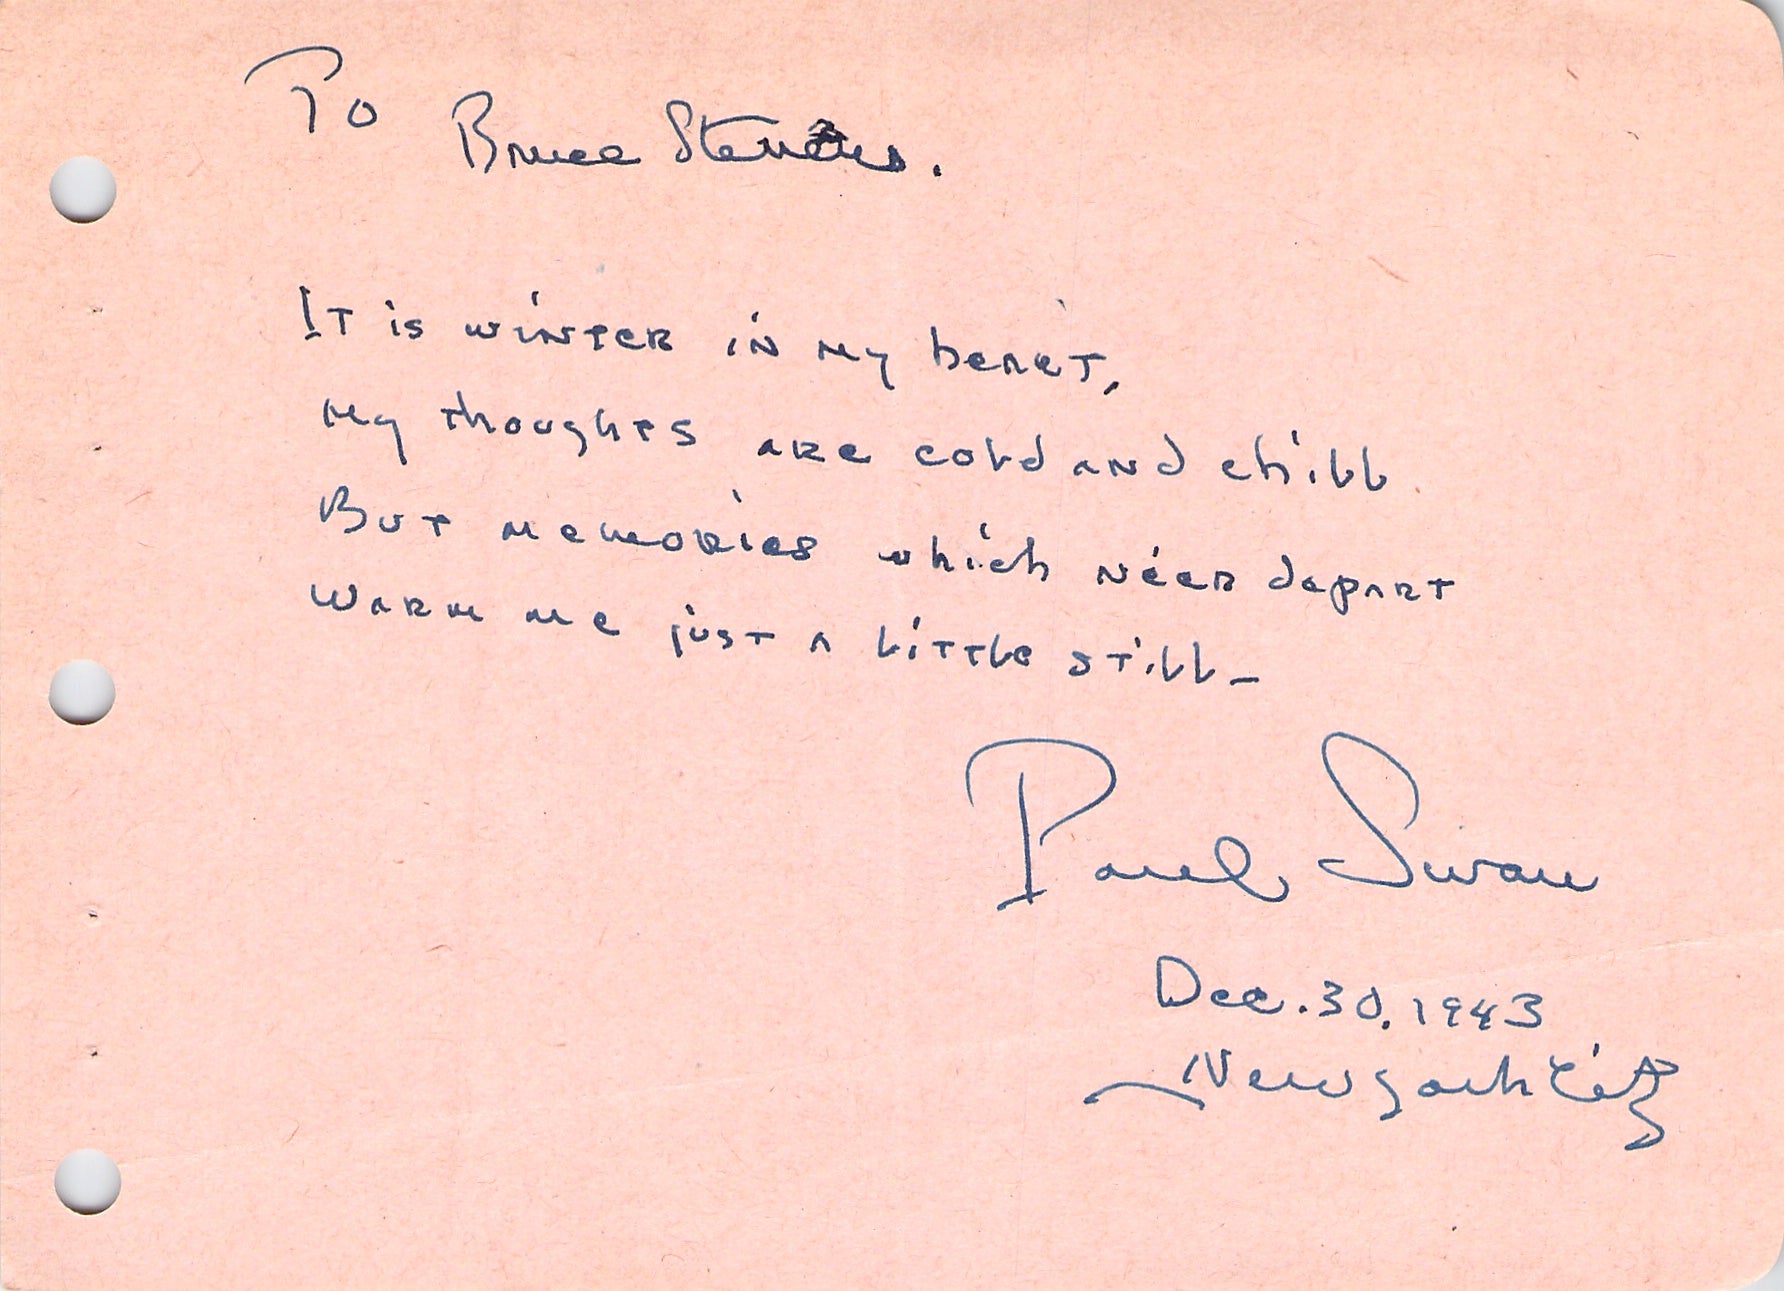 To Bruce Stevens.
It is winter in my heart,
My thoughts are cold and chill
But memories which ne'er depart
Warm me just a little still —
Paul Swan
Dec. 30. 1943
New York City